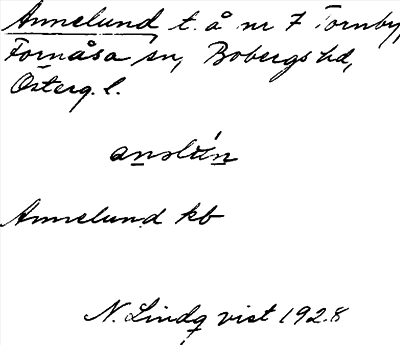 Annelund, t. å nr 7 Fornby,
Fornåsa sn, Bobergs hd,
Österg. l.
anslu̇́n
Annelund kb
N. Lindq vist 1928